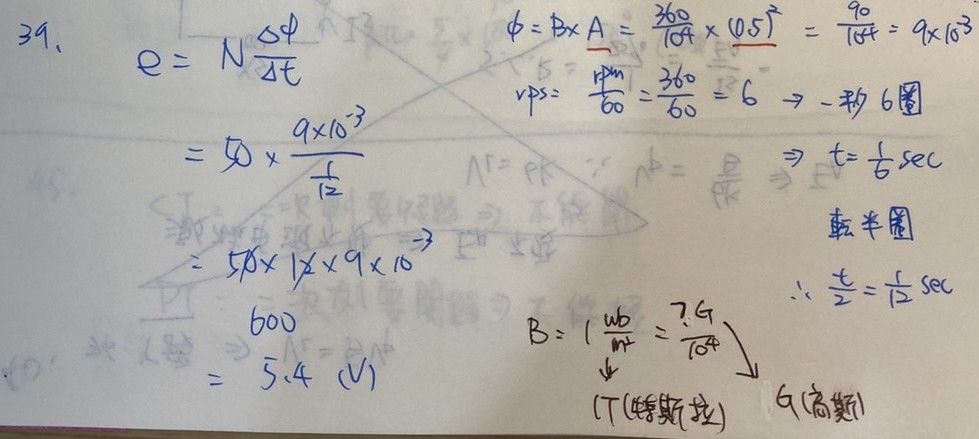 39.
e = N Δφ/Δt
= 50 × 9×10⁻³ / (1/12)
= 50 × 12 × 9 × 10⁻³
600
= 5.4 (V)
φ = B × A = 360/10⁴ × (0.5)² = 90/10⁴ = 9×10⁻³
rps = rpm/60 = 360/60 = 6 → 一秒6圈
⇒ t = 1/6 sec
転半圈
∴ t/2 = 1/12 sec
B = 1 wb/m² = ?G/10⁴
1T(特斯拉)
G(高斯)